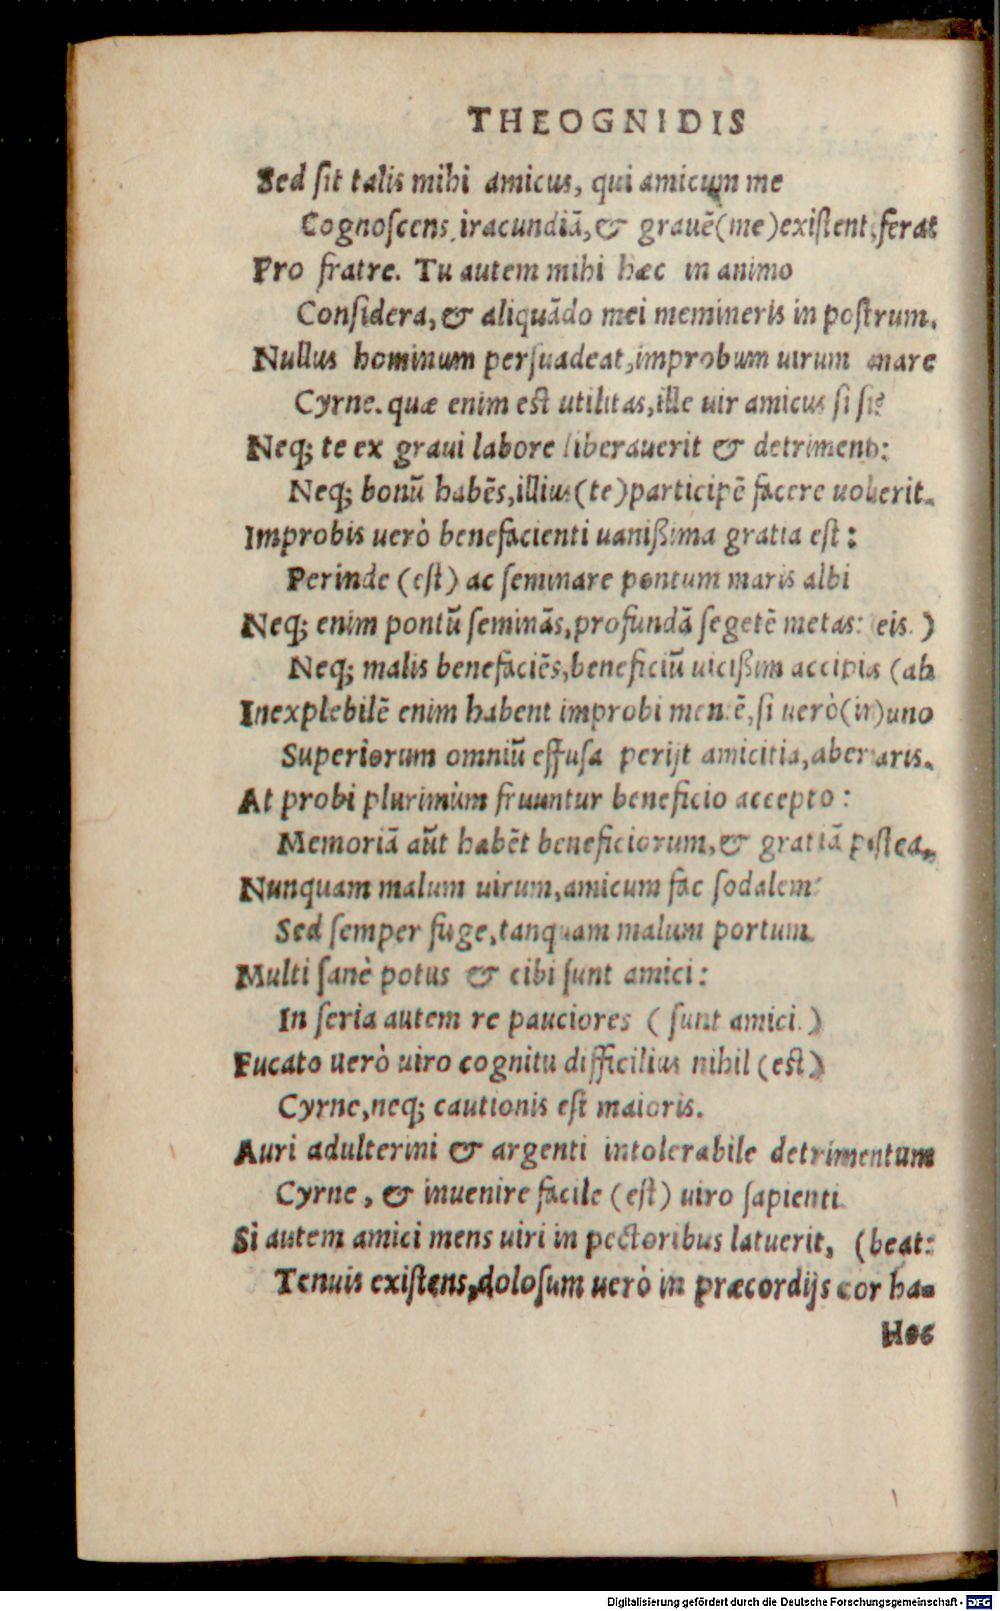 THEOGNIDIS
Sed ſit talis mihi amicus, qui amicum me
Cognoſcens, iracundiā, & grauē(me)exiſtent, ferat
Pro fratre. Tu autem mihi hæc in animo
Conſidera, & aliquādo mei memineris in poſtrum.
Nullus hominum perſuadeat, improbum uirum amare
Cyrne. quæ enim est utilitas, ille uir amicus ſi ſit?
Neq; te ex graui labore liberauerit & detrimento:
Neq; bonū habēs, illius(te)participē facere uoluerit.
Improbis uerò benefacienti uaniſsima gratia eſt:
Perinde (eſt) ac ſeminare pontum maris albi
Neq; enim pontū ſeminās, profundā ſegetē metas: eis.)
Neq; malis benefaciēs, beneficiū uiciſsim accipias (ab
Inexplebilē enim habent improbi mentē, ſi uerò(in)uno
Superiorum omniū effuſa perijt amicitia, aberraris.
At probi plurimùm fruuntur beneficio accepto:
Memoriā aūt habēt beneficiorum, & gratiā poſtea.
Nunquam malum uirum, amicum fac ſodalem:
Sed ſemper fuge, tanquam malum portum.
Multi ſanè potus & cibi ſunt amici:
In ſeria autem re pauciores (ſunt amici.)
Fucato uerò uiro cognitu difficilius nihil (est)
Cyrne, neq; cautionis eſt maioris.
Auri adulterini & argenti intolerabile detrimentum
Cyrne, & inuenire facile (eſt) uiro ſapienti.
Si autem amici mens uiri in pectoribus latuerit, (beat:
Tenuis exiſtens, doloſum uerò in præcordijs cor ha-
Hoc
Digitalisierung gefördert durch die Deutsche Forschungsgemeinschaft - DFG